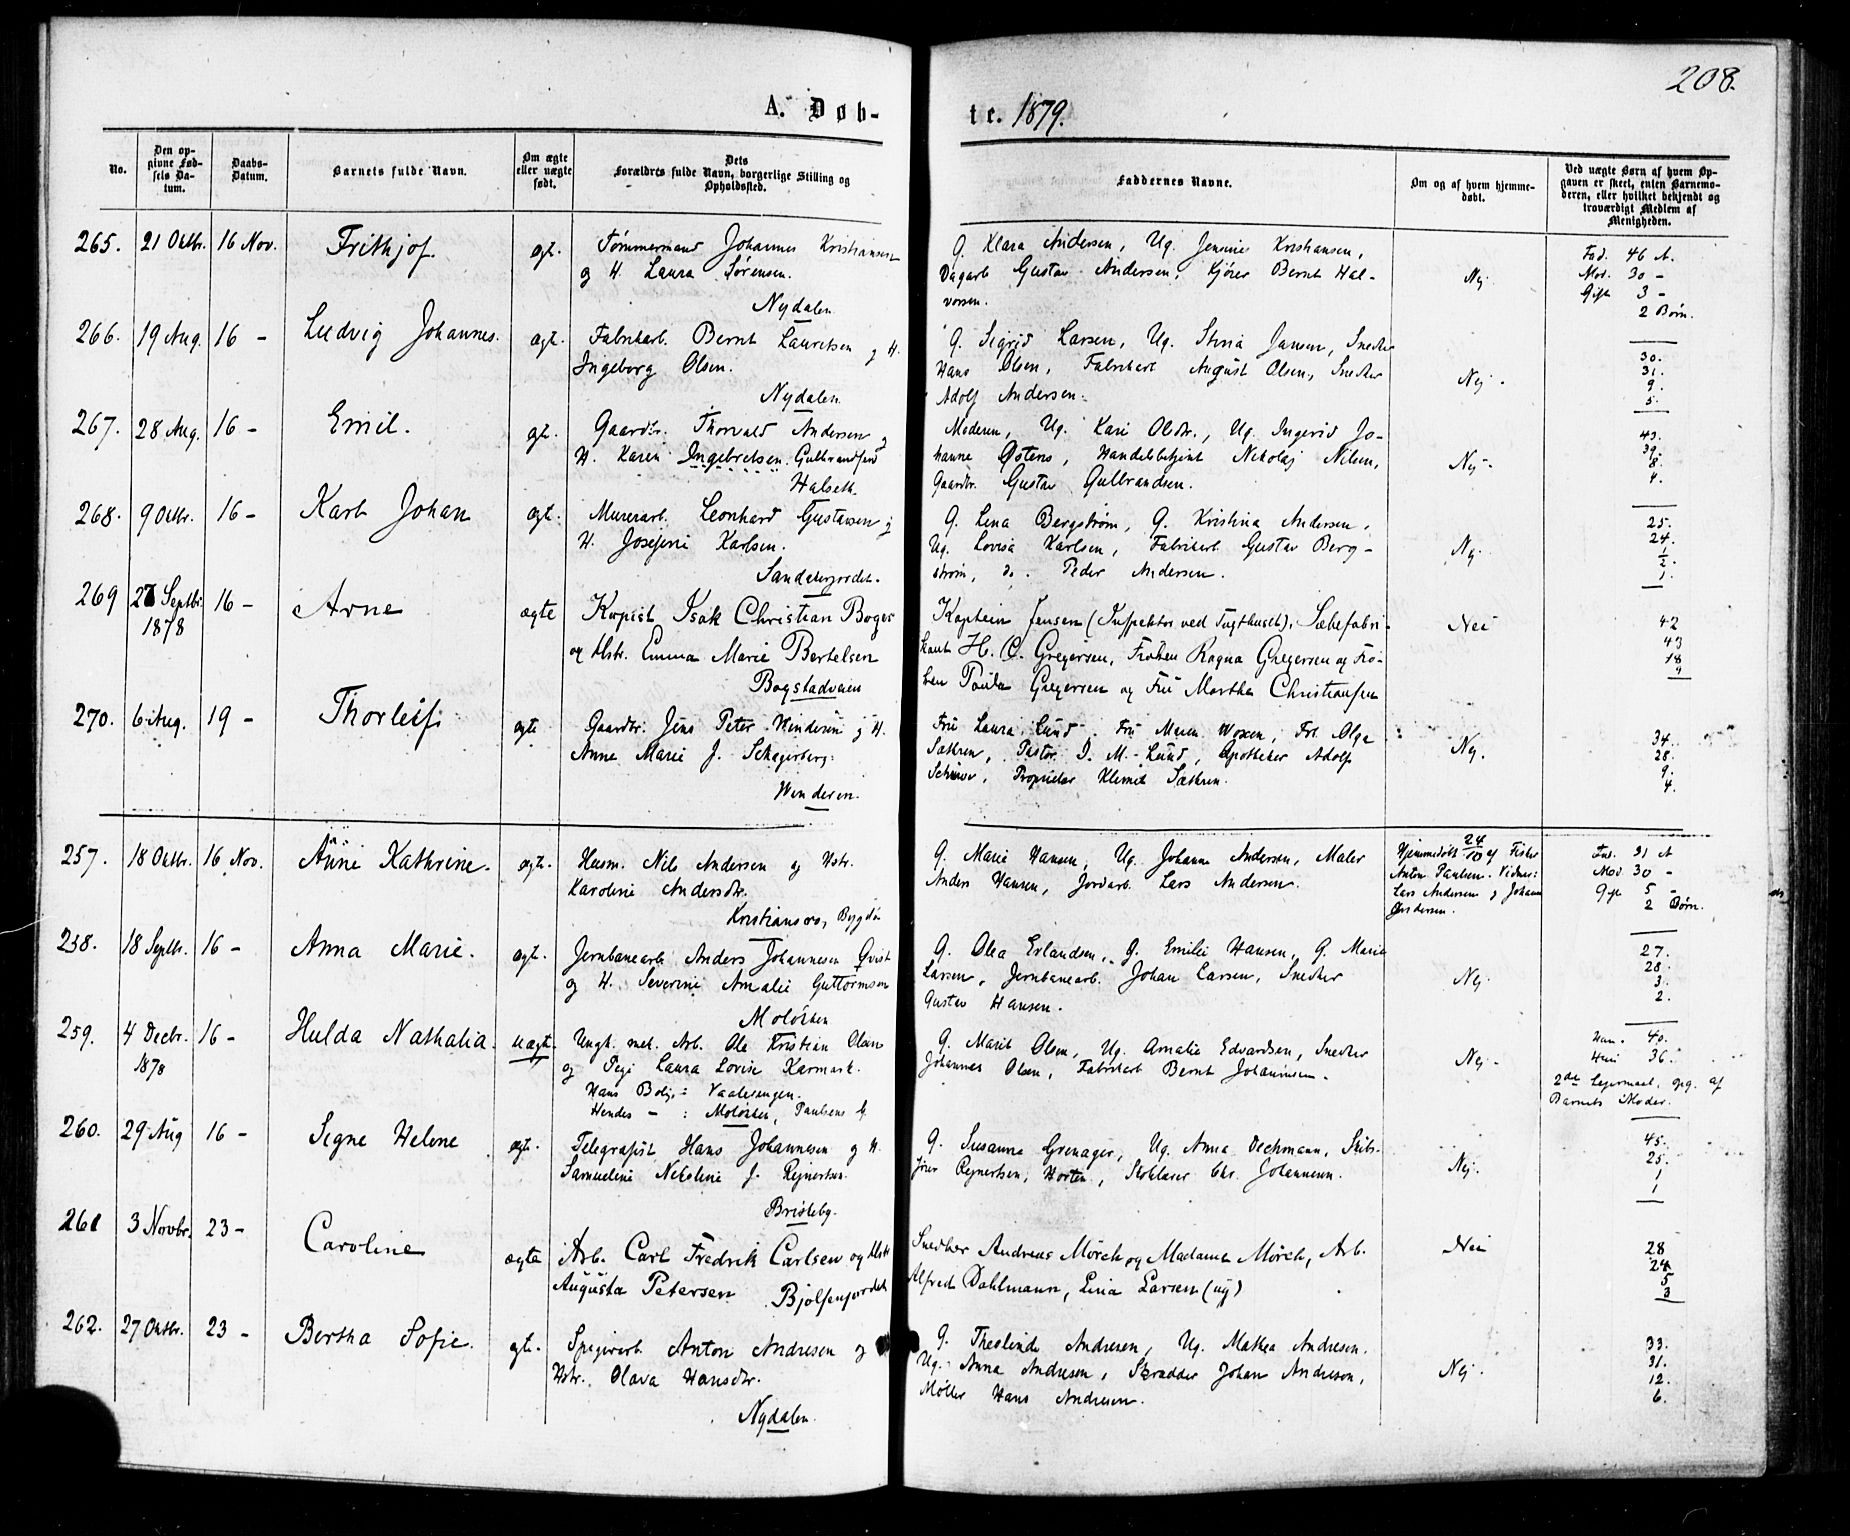 208.
A. Døb-
te. 1879.
No.
Den op-
givne Fød-
sels Da-
tum.
Daabs-
Datum.
Barnets fulde Navn.
Om ægte
eller uægte
født.
Dets
Forældres fulde Navn, borgerlige Stilling og
Opholdssted.
Faddernes Navne.
Om og af hvem hjemme-
døbt.
Ved uægte Børn af hvem Op-
gaven er skeet, enten Barnemo-
deren, eller hvilket bekjendt og
troværdigt Medlem af
Menigheden.
265. 21 Oktbr. 16 Nov. Frithjof. ægt. Tømmermand Johannes Kristiansen
og H. Laura Sørensen.
Nydalen
G. Klara Andersen, Ug. Jensine Kristiansen,
Dagarb Gustav Andersen, Kjører Bernt Hal-
vorsen.
Nej.
Fad. 46 A.
Mod. 30 -
Gift 3 -
2 Børn.
266. 19 Aug. 16 - Ludvig Johannes. ægt. Fabrikarb. Bernt Lauritsen og H.
Ingeborg Olsen.
Nydalen
G. Sigrid Larsen, Ug. Stina Jansen, Snedker
Hans Olsen, Fabrikarb August Olsen, Snedker
Adolf Andersen.
Nej.
30.
31.
9.
5.
267. 28 Aug. 16 - Emil. gt. Gaardbr. Thorvald Andersen og
H. Karen Ingebretsen Gulbrandsen
Halseth.
Moderen, Ug. Kari Oldtr., Ug. Ingerid Jo-
hanne Østens, Handelsbetjent Nikolaj Nilsen,
Gaardbr. Gustav Gulbrandsen.
Nej.
43.
39.
8.
4.
268. 9 Oktbr. 16 - Karl Johan ægt. Murerarb. Leonhard Gustavsen og
H. Josefine Karlsen.
Sandakerjordet.
G. Lina Bergstrøm, G. Kristina Andersen,
Ug. Lovisa Karlsen, Fabrikarb Gustav Berg-
strøm, do. Peder Andersen.
Nej.
25.
24.
1/2.
1.
269 27 Septbr. 16 - Arne ægte Kopist Isak Christian Boger
1878
og Hstr. Emma Marie Bertelsen
Bogstadveien
Kaptein Jensen (Inspektør ved Tugthuset), Sæbefabri-
kant H. C. Gregersen, Frøken Ragna Gregersen og Frø-
ken Paula Gregersen og Fru Martha Christiansen
Nei
42
43
18
9
270. 6 Aug. 19 - Thorleif. ægte Gaardbr. Jens Peter Vinderen og H.
Anne Marie J. Schagerberg.
Vinderen.
Fru Laura Lund, Fru Maren Woxen, Frk Olga
Sæthren, Pastor D. M. Lund, Apotheker Adolf
Schivor, Proprietær Klemet Sæthren.
Nej.
34.
28.
9.
4.
257. 18 Oktbr. 16 Nov. Anne Kathrine. ægt. Husm. Nils Andersen og Hstr.
Karoline Andersdtr.
Kristiansro, Bygdø
G. Marie Hansen, Ug. Johanne Andersen, Maler
Anders Hansen, Jordarb. Lars Andersen.
Hjemmedøbt 24/10 af Fisker
Anton Paulsen. Vidner:
Lars Andersen og Johan
Andersen.
Fad. 31 A
Mod 30 -
Gift 5 -
2 Børn.
258. 18 Septbr. 16 - Anna Marie. ægt. Jernbanearb Anders Johannesen Qvist
og H. Severine Amalie Guttormsen
Moløkken
G. Olea Erlandsen, G. Emilie Hansen, G. Marie
Larsen, Jernbanearb. Johan Larsen, Snedker
Gustav Hansen.
Nej.
27.
28.
3.
2.
259. 4 Decbr. 16 - Hulda Nathalia. uægt. Ungk. mel. Arb. Ole Kristian Olsen
1878
og Pige Laura Lovise Karmark.
Hans Bolig: Vaalerengen.
Hendes - : Moløkken, Paulsens G.
G. Marit Olsen, Ug. Amalie Edvardsen, Snedker
Johannes Olsen, Fabrikarb Bernt Johannesen.
Nej.
Han. 40.
Hun 36.
2den Leiermaal, opg. af
Barnets Moder.
260. 29 Aug 16 - Signe Helene ægt. Telegrafist Hans Johannesen og H.
Samueline Nikoline J. Rejnertsen.
Briskeby.
G. Susanne Grenager, Ug. Anna Dechmann, Skibs-
fører Rejnertsen, Horten, Skolelærer Chr. Johannesen.
Nej.
45.
25.
1
1
261 3 Novbr. 23 - Caroline ægte Arb. Carl Fredrik Carlsen og Hstr
Augusta Petersen Bjølsenjordet
Snedker Andreas Mørch og Madame Mørch, Arb.
Alfred Dahlmann, Lina Larsen (ug)
Nei
28
24
5
3
262. 27 Oktbr. 23 - Bertha Sofie. gt. Spigerarb. Anton Andresen og
Hstr. Olava Hansdtr.
Nydalen.
G. Theolinde Andresen, Ug. Mathea Andresen.
Ug. Anna Andresen, Skrædder Johan Andreson,
Møller Hans Andresen.
Nej.
33.
31.
12.
6.